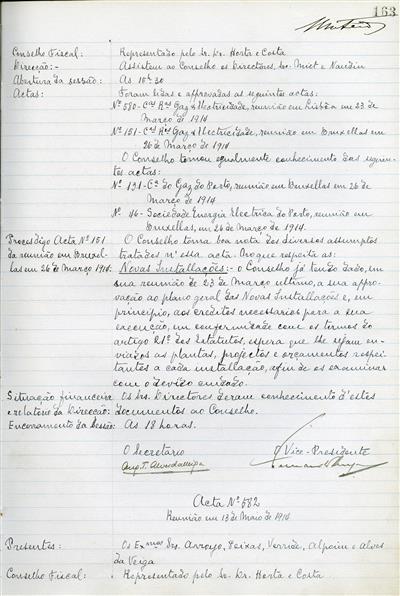 163
Conselho Fiscal: Representado pelo Sr. Dr. Horta e Costa
Direcção:- Assistem ao Conselho os Directores, Srs. Miet e Naudin
Abertura da sessão: Ás 15h 30
Actas: Foram lidas e approvadas as seguintes actas:
Nº 580 - Cas Rs Gaz & Electricidade, reunião em Lisbôa em 23 de
Março de 1914
Nº 151 - Cas Rs Gaz & Electricidade, reunião em Bruxellas em
26 de Março de 1914
O Conselho tomou egualmente conhecimento das seguin-
tes actas:
Nº 121 - Cª do Gaz do Porto, reunião em Bruxellas em 26 de
Março de 1914
Nº 46 - Sociedade Energia Electrica do Porto, reunião em
Bruxellas, em 26 de Março de 1914.
Acta Nº 151 O Conselho toma boa nota dos diversos assumptos
da reunião em Bruxel- tratados n'essa acta. No que respeita ás:
las em 26 de Março 1914: Novas Installações:- o Conselho já tendo dado, em
sua reunião de 23 de Março ultimo, a sua appro-
vação ao plano geral das Novas Installações e, em
principio, aos creditos necessarios para a sua
execução, em conformidade com os termos do
artigo 21º dos Estatutos, espera que lhe sejam en-
viados as plantas, projectos e orçamentos respei-
tantes a cada installação, afim de os examinar
com o devido cuidado.
Situação financeira Os Srs. Directores deram conhecimento d'estes
e relatorio da Direcção: documentos ao Conselho.
Encerramento da Sessão: Ás 18 horas.
O Secretario O Vice-Presidente
Acta Nº 582
Reunião em 13 de Maio de 1914
Presentes: Os Exmos Srs. Arroyo, Seixas, Verride, Alpoim e Alves
da Veiga
Conselho Fiscal: Representado pelo Sr. Dr. Horta e Costa